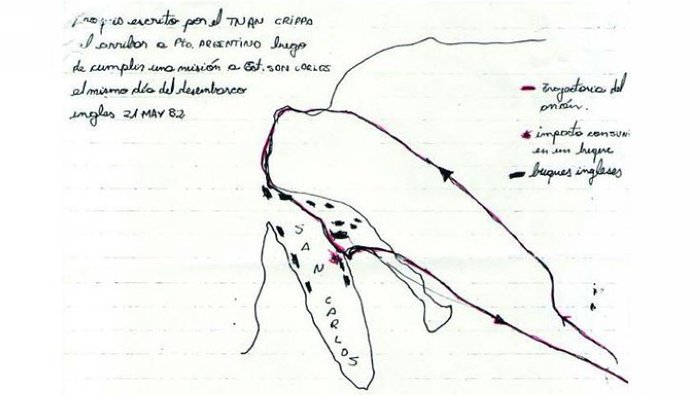 escrito por el TNAN CRIPPA
al arribar a Pto. ARGENTINO luego
de cumplir una misión a Est. SAN CARLOS
el mismo día del desembarco
ingles 21 MAY 82
Trayectoria del
avión.
impacto
en un buque
buques ingleses
SAN CARLOS